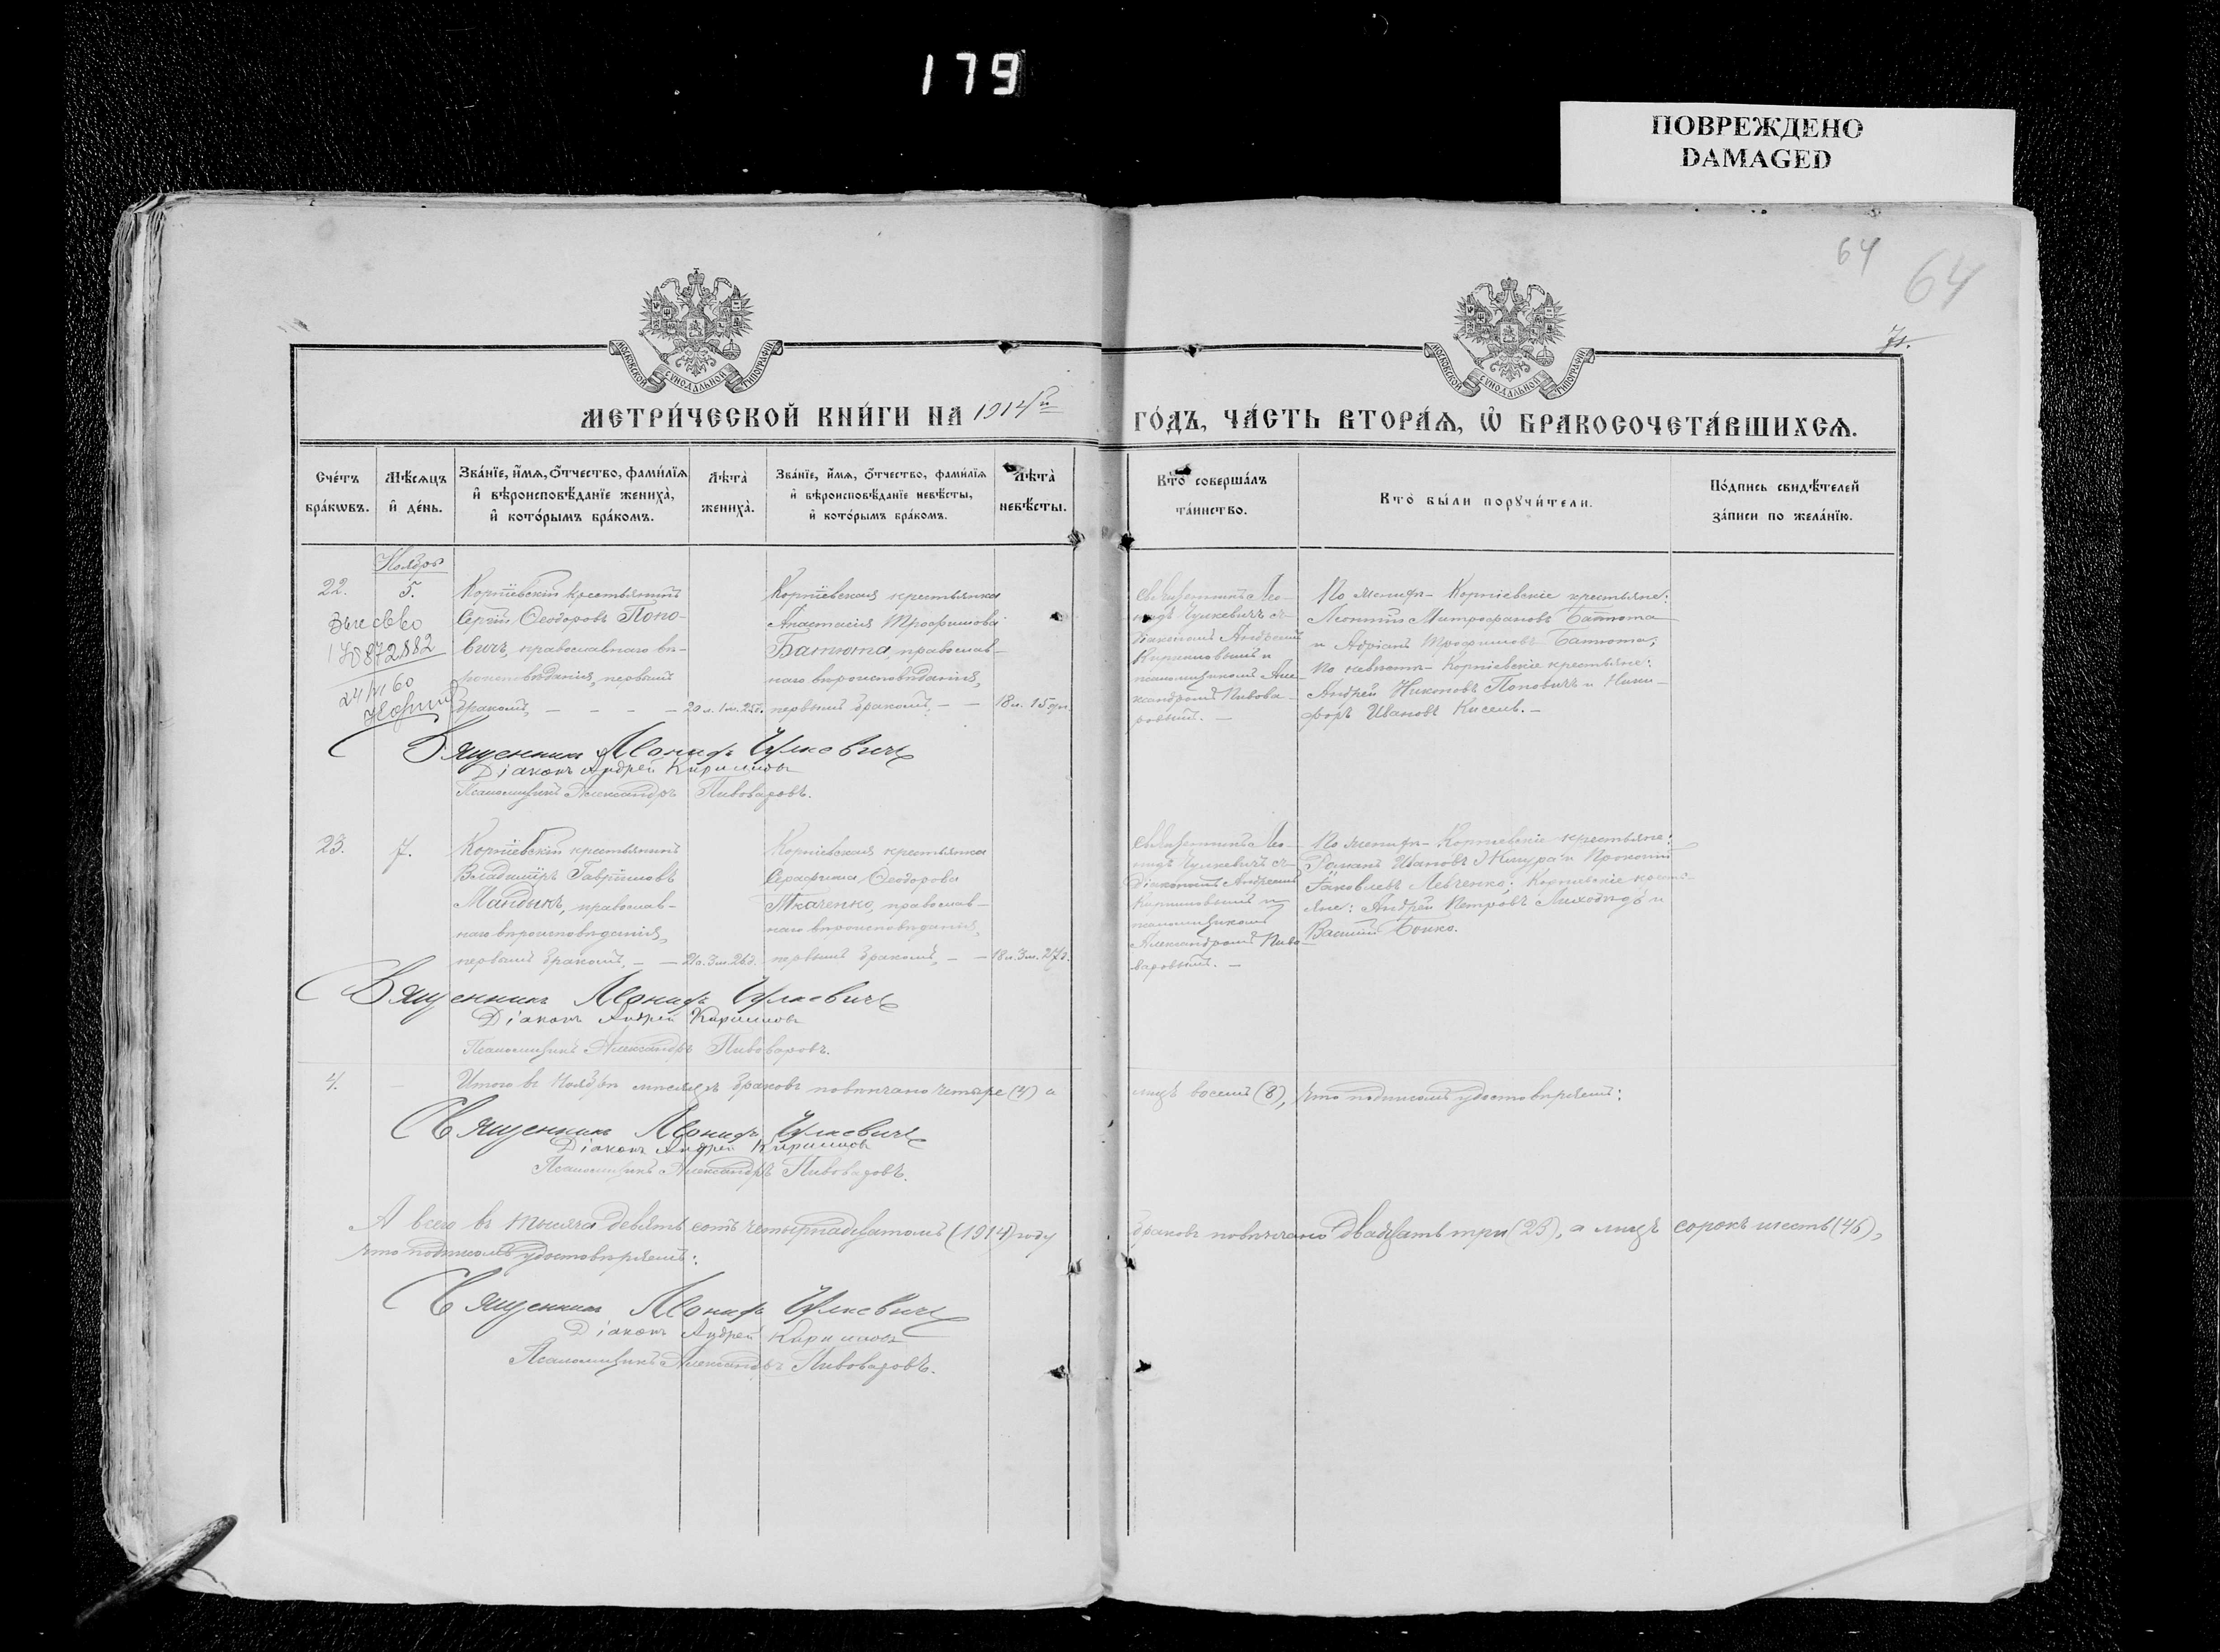 179
ПОВРЕЖДЕНО
DAMAGED
64
64
МОСКОВСКОЙ СѴНОДАЛЬНОЙ ТИПОГРАФІИ
МОСКОВСКОЙ СѴНОДАЛЬНОЙ ТИПОГРАФІИ
МЕТРИ́ЧЕСКОЙ КНИ́ГИ НА 1914й
ГО́ДЪ, ЧА́СТЬ ВТОРА́Ѧ, Ѽ БРАКОСОЧЕТА́ВШИХСѦ.
Сче́тъ
бра́кѡвъ.
Мѣ́сѧцъ
и҆ де́нь.
Зва́нїе, и҆́мѧ, ѻ҆́тчество, фами́лїѧ
и҆ вѣроисповѣ́данїе жениха̀,
и҆ кото́рымъ бра́комъ.
Лѣта̀
жениха̀.
Зва́нїе, и҆́мѧ, ѻ҆́тчество, фами́лїѧ
и҆ вѣроисповѣ́данїе невѣ́сты,
и҆ кото́рымъ бра́комъ.
Лѣта̀
невѣ́сты.
Кто̀ соверша́лъ
та́инство.
Кто̀ бы́ли порꙋчи́тели.
По́дпись свидѣ́телей
за́писи по жела́нїю.
Ноябрь
22.
5.
Корніевскій крестьянинъ
Сергій Ѳеодоровъ Попо-
вичъ, православнаго вѣ-
роисповѣданія, первымъ
бракомъ, — — — —
20 л. 1 м. 25 д.
Корніевская крестьянка
Анастасія Трофимова
Батюта, православ-
наго вѣроисповѣданія,
первымъ бракомъ. — —
18 л. 15 дн.
Священникъ Лео-
нидъ Чулкевичъ съ
діакономъ Андреемъ
Кирилловымъ и
псаломщикомъ Але-
ксандромъ Пивова-
ровымъ. —
По женихѣ — Корніевскіе крестьяне:
Леонтій Митрофановъ Батюта
и Адріанъ Трофимовъ Батюта;
по невѣстѣ — Корніевскіе крестьяне:
Андрей Никоновъ Поповичъ и Ники-
форъ Ивановъ Кисель. —
872882
24/VI 60
Священникъ Леонидъ Чулкевичъ
Діаконъ Андрей Кирилловъ
Псаломщикъ Александръ Пивоваровъ.
23.
7.
Корніевскій крестьянинъ
Владиміръ Гавріиловъ
Мандыкъ, православ-
наго вѣроисповѣданія,
первымъ бракомъ, — —
21 л. 3 м. 26 д.
Корніевская крестьянка
Серафима Ѳеодорова
Ткаченко, православ-
наго вѣроисповѣданія,
первымъ бракомъ, — —
18 л. 3 м. 27 д.
Священникъ Лео-
нидъ Чулкевичъ съ
діакономъ Андреемъ
Кирилловымъ и
псаломщикомъ
Александромъ Пиво-
варовымъ. —
По женихѣ — Корніевскіе крестьяне:
Романъ Ивановъ и Прокопій
Іаковлевъ Левченко; Корніевскіе кресть-
яне: Андрей Петровъ Лиходѣдъ и
Василій Бойко.
Священникъ Леонидъ Чулкевичъ
Діаконъ Андрей Кирилловъ
Псаломщикъ Александръ Пивоваровъ.
4.
—
Итого въ Ноябрѣ мѣсяцѣ браковъ повѣнчано четыре (4) а
лицъ восемь (8), что подписомъ удостовѣряемъ:
Священникъ Леонидъ Чулкевичъ
Діаконъ Андрей Кирилловъ
Псаломщикъ Александръ Пивоваровъ.
А всего въ тысяча девятьсотъ четырнадцатомъ (1914) году
браковъ повѣнчано двадцать три (23), а лицъ сорокъ шесть (46),
что подписомъ удостовѣряемъ:
Священникъ Леонидъ Чулкевичъ
Діаконъ Андрей Кирилловъ
Псаломщикъ Александръ Пивоваровъ.